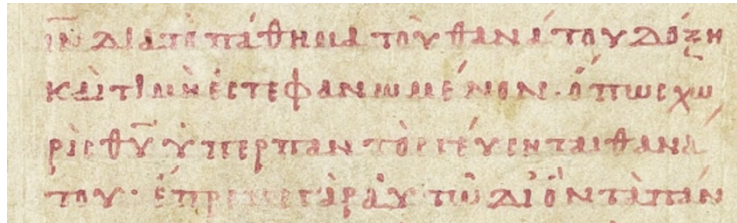 ι̅ν̅ διὰ τὸ πάθημα τοῦ θανάτου δόξη
καὶ τιμῆ ἐστεφανωμένον· ὅπως χω
ρὶς θ̅υ̅ ὑπερ παντὸς γεύσηται θανά
του· ἔπρεπεν γὰρ αὐτῶ δι ὃν τὰ πάν